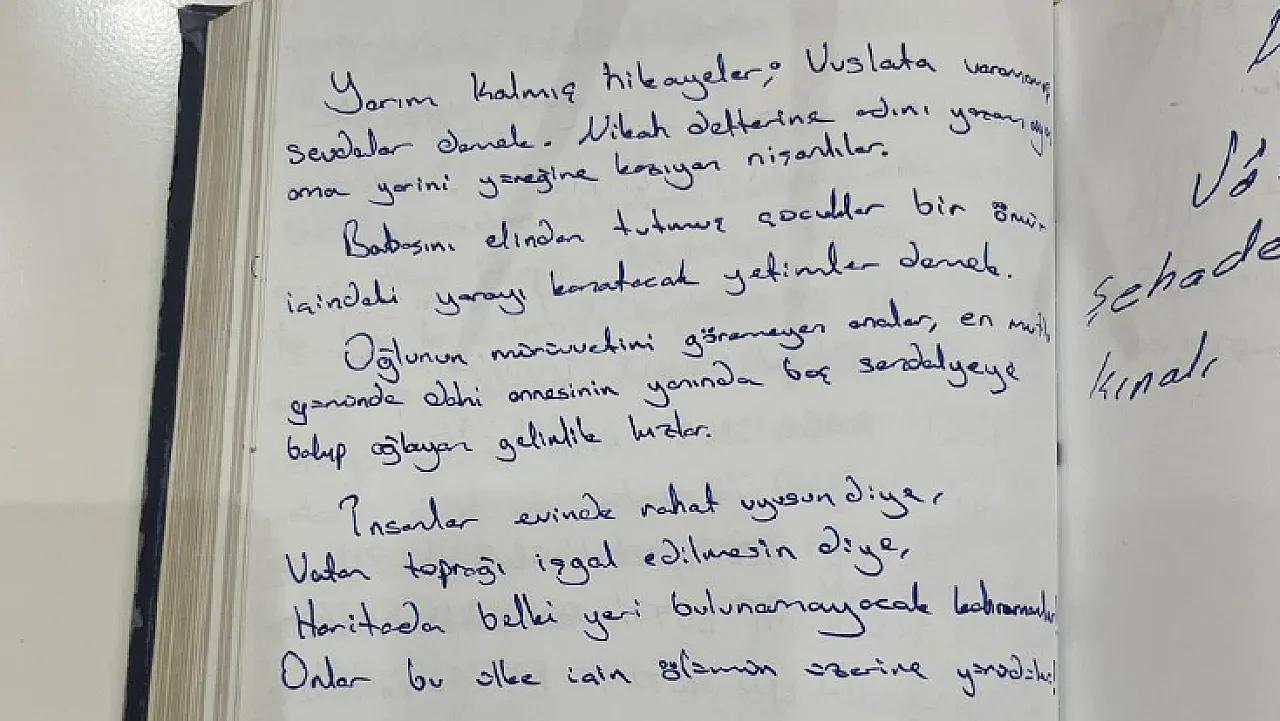 Yarım kalmış hikayeler; Vuslata varamamış
sevdalar demek. Nikah defterine adını yazamayıp
ama yarini yüreğine kazıyan nişanlılar.
Babasını elinden tutmuş çocuklar bir ömür
içindeki yarayı kanatacak yetimler demek.
Oğlunun mürüvvetini göremeyen analar, en mutlu
gününde dahi annesinin yanında boş sandalyeye
bakıp ağlayan gelinlik kızlar.
İnsanlar evinde rahat uyusun diye,
Vatan toprağı işgal edilmesin diye,
Haritada belki yeri bulunamayacak kahramanlar
Onlar bu ülke için ölümün üzerine yürüdüler!
Kınalı